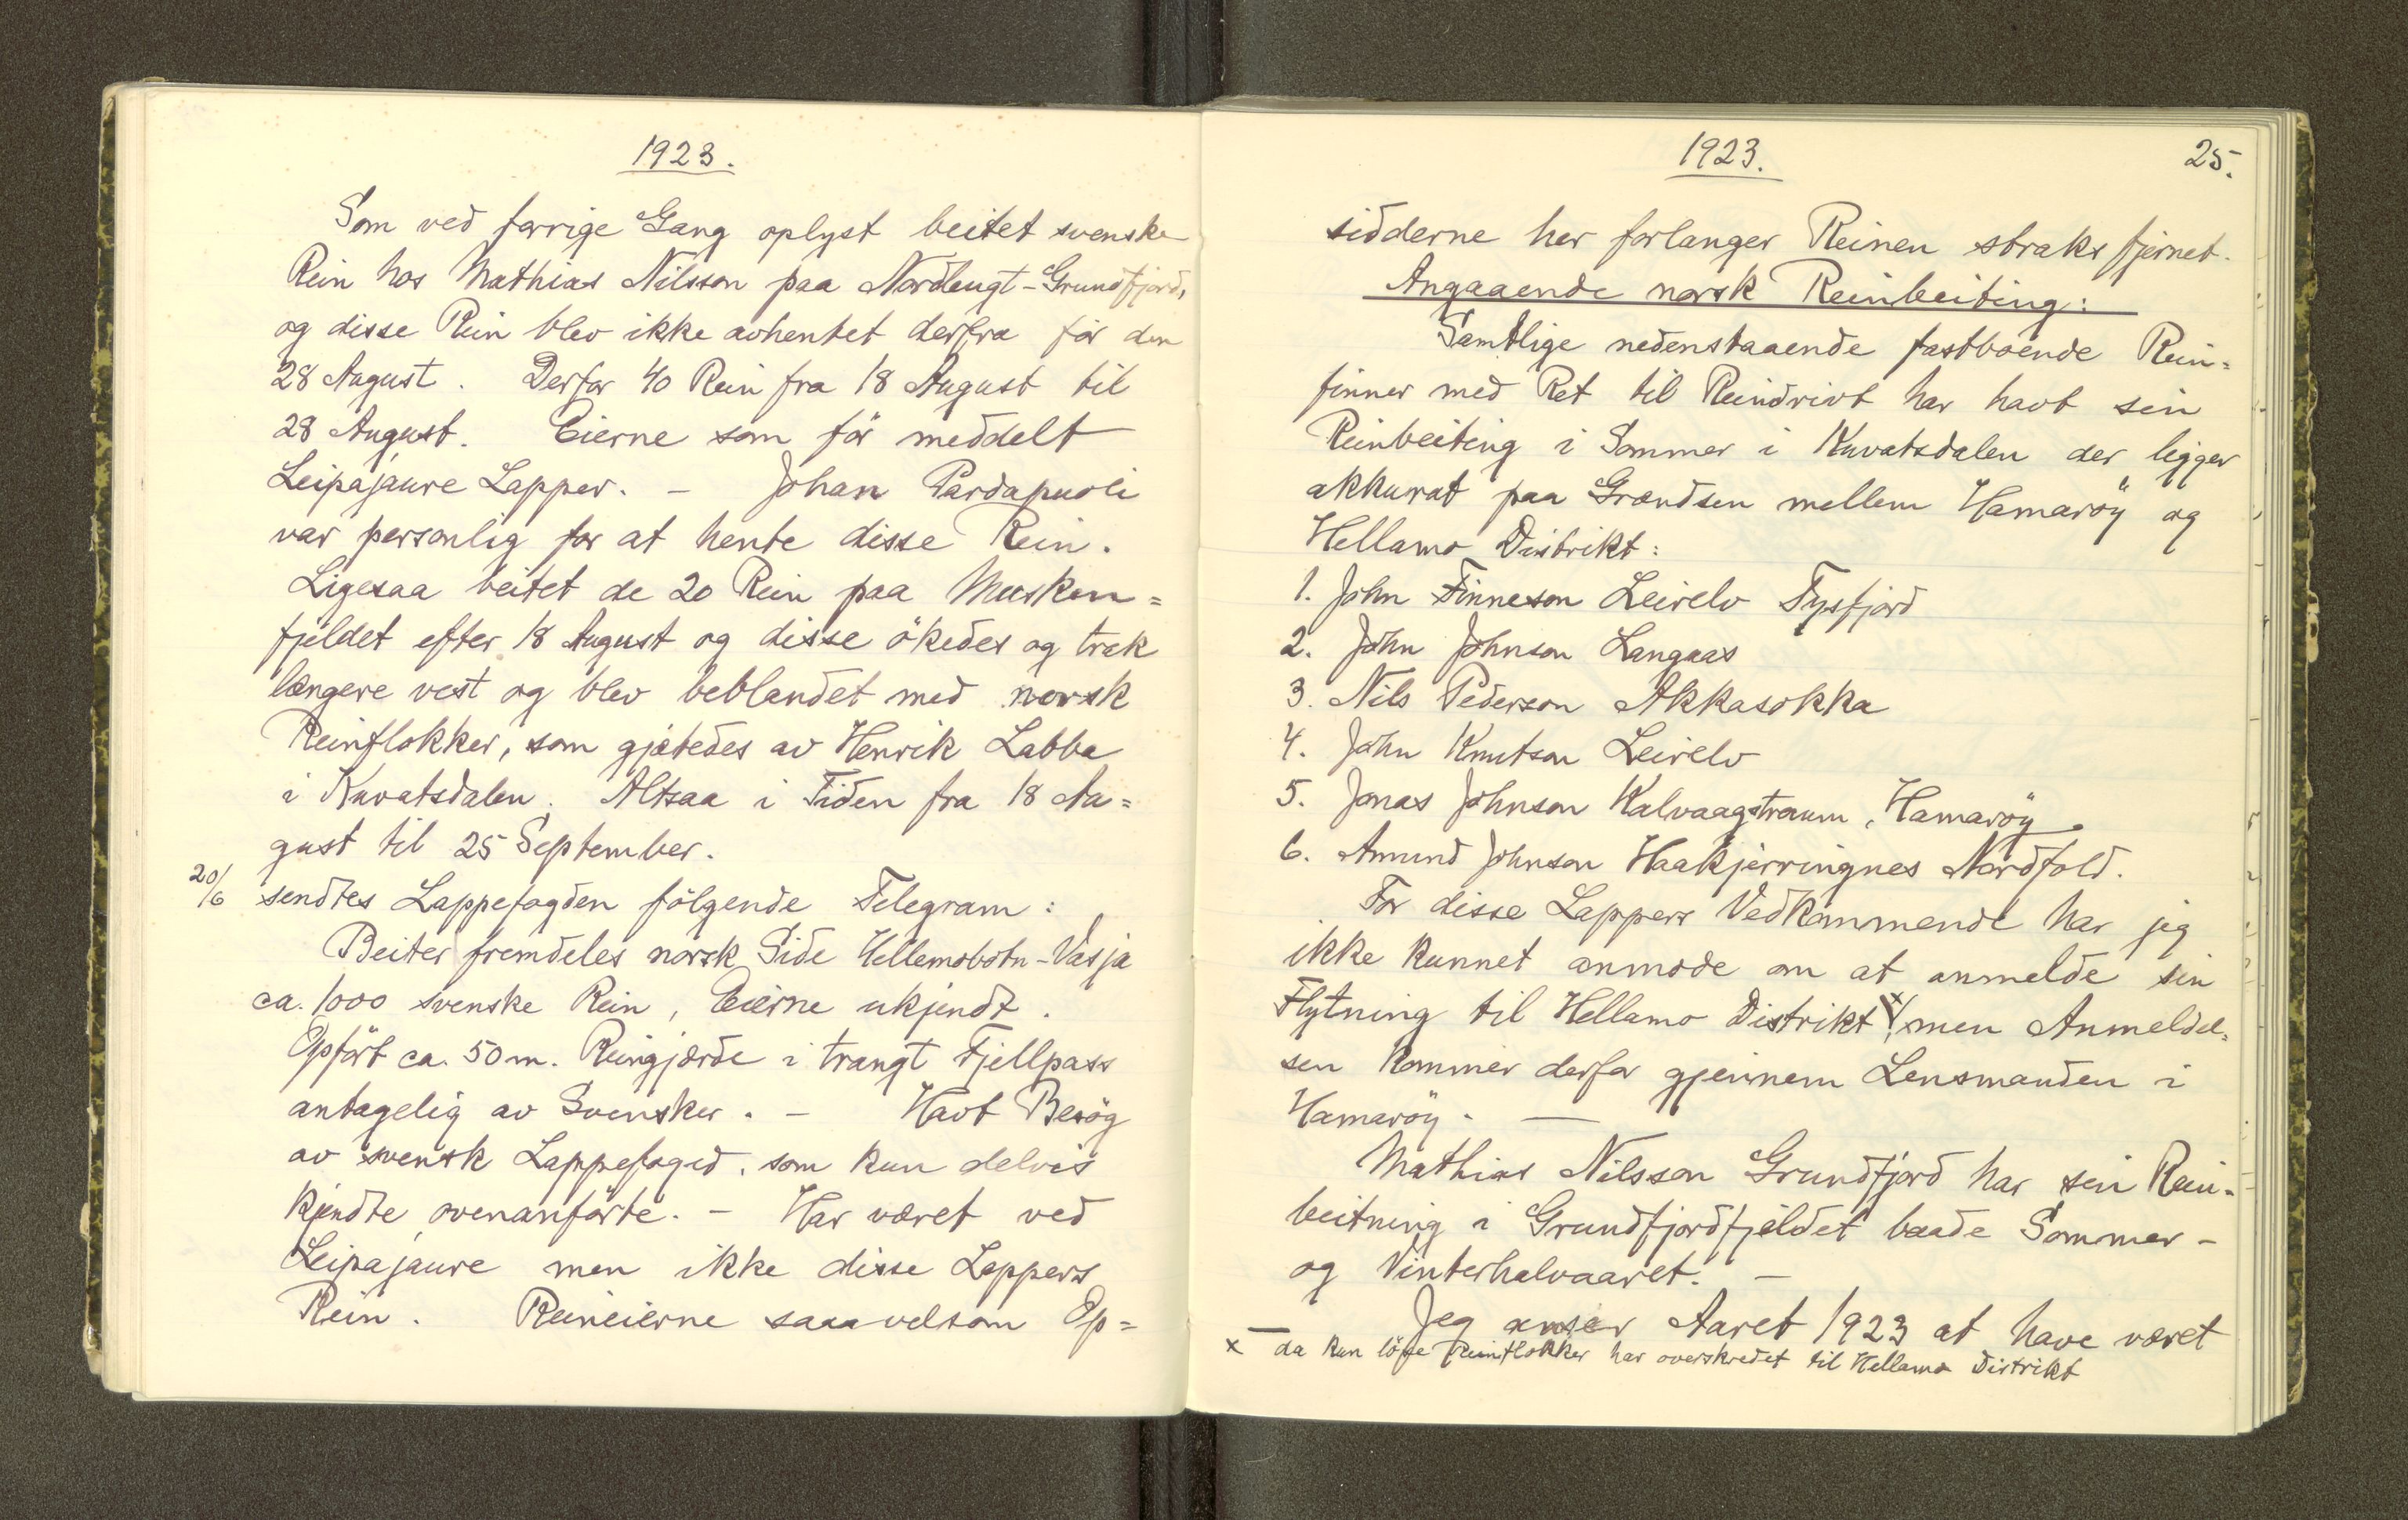 1923.
Som ved forrige Gang oplyst beitet svenske
Rein hos Mathias Nilsson paa Nordbugt-Grundfjord,
og disse Rein blev ikke avhentet derfra för den
28 August. Derfor 40 Rein fra 18 August til
28 August. Eierne som för meddelt
Leipajaure Lapper. – Johan Pardapuoli
var personlig for at hente disse Rein.
Ligesaa beitet de 20 Rein paa Musken=
fjeldet efter 18 August og disse ökedes og trak
længere vest og blev beblandet med norsk
Reinflokker, som gjætedes av Henrik Labba
i Kuvatsdalen. Altsaa i Tiden fra 18 Au=
gust til 25 September.
20/6 sendtes Lappefogden fölgende Telegram:
Beiter fremdeles norsk Side Hellemobotn-Vasja
ca. 1000 svenske Rein, Eierne ukjendt.
Opfört ca. 50 m. Reingjærde i trangt Fjellpass
antagelig av Svensker. – Havt Besög
av svensk Lappefoged. som kun delvis
kjendte ovenanförte. – Har været ved
Leipajaure men ikke disse Lappers
Rein. Reineierne saaavelsom Op=
1923. 25.
sidderne her forlanger Reinen straks fjernet.
Angaaende norsk Reinbeiting:
Samtlige nedenstaaende fastboende Rein=
finner med Ret til Reindrivt har havt sin
Reinbeiting i Sommer i Kuvatsdalen der ligger
akkurat paa Grændsen mellem Hamaröy og
Hellamo Distrikt:
1. John Finneson Leirelv Tysfjord
2. John Johnson Langaas
3. Nils Pederson Akkasokka
4. John Knutson Leirelv
5. Jonas Johnson Kalvaagstraum, Hamaröy.
6. Amund Johnson Haakjerringnes Nordfold.
For disse Lappers Vedkommende har jeg
ikke kunnet anmode om at anmelde sin
Flytning til Hellamo Distrikt x, men Anmeldel=
sen kommer derfor gjennem Lensmanden i
Hamaröy. —
Mathias Nilsson Grundfjord har sin Rein-
beitning i Grundfjordfjeldet baade Sommer-
og Vinterhalvaaret. –
Jeg anser Aaret 1923 at have været
x da kun löse Reinflokker har overskredet til Hellamo Distrikt